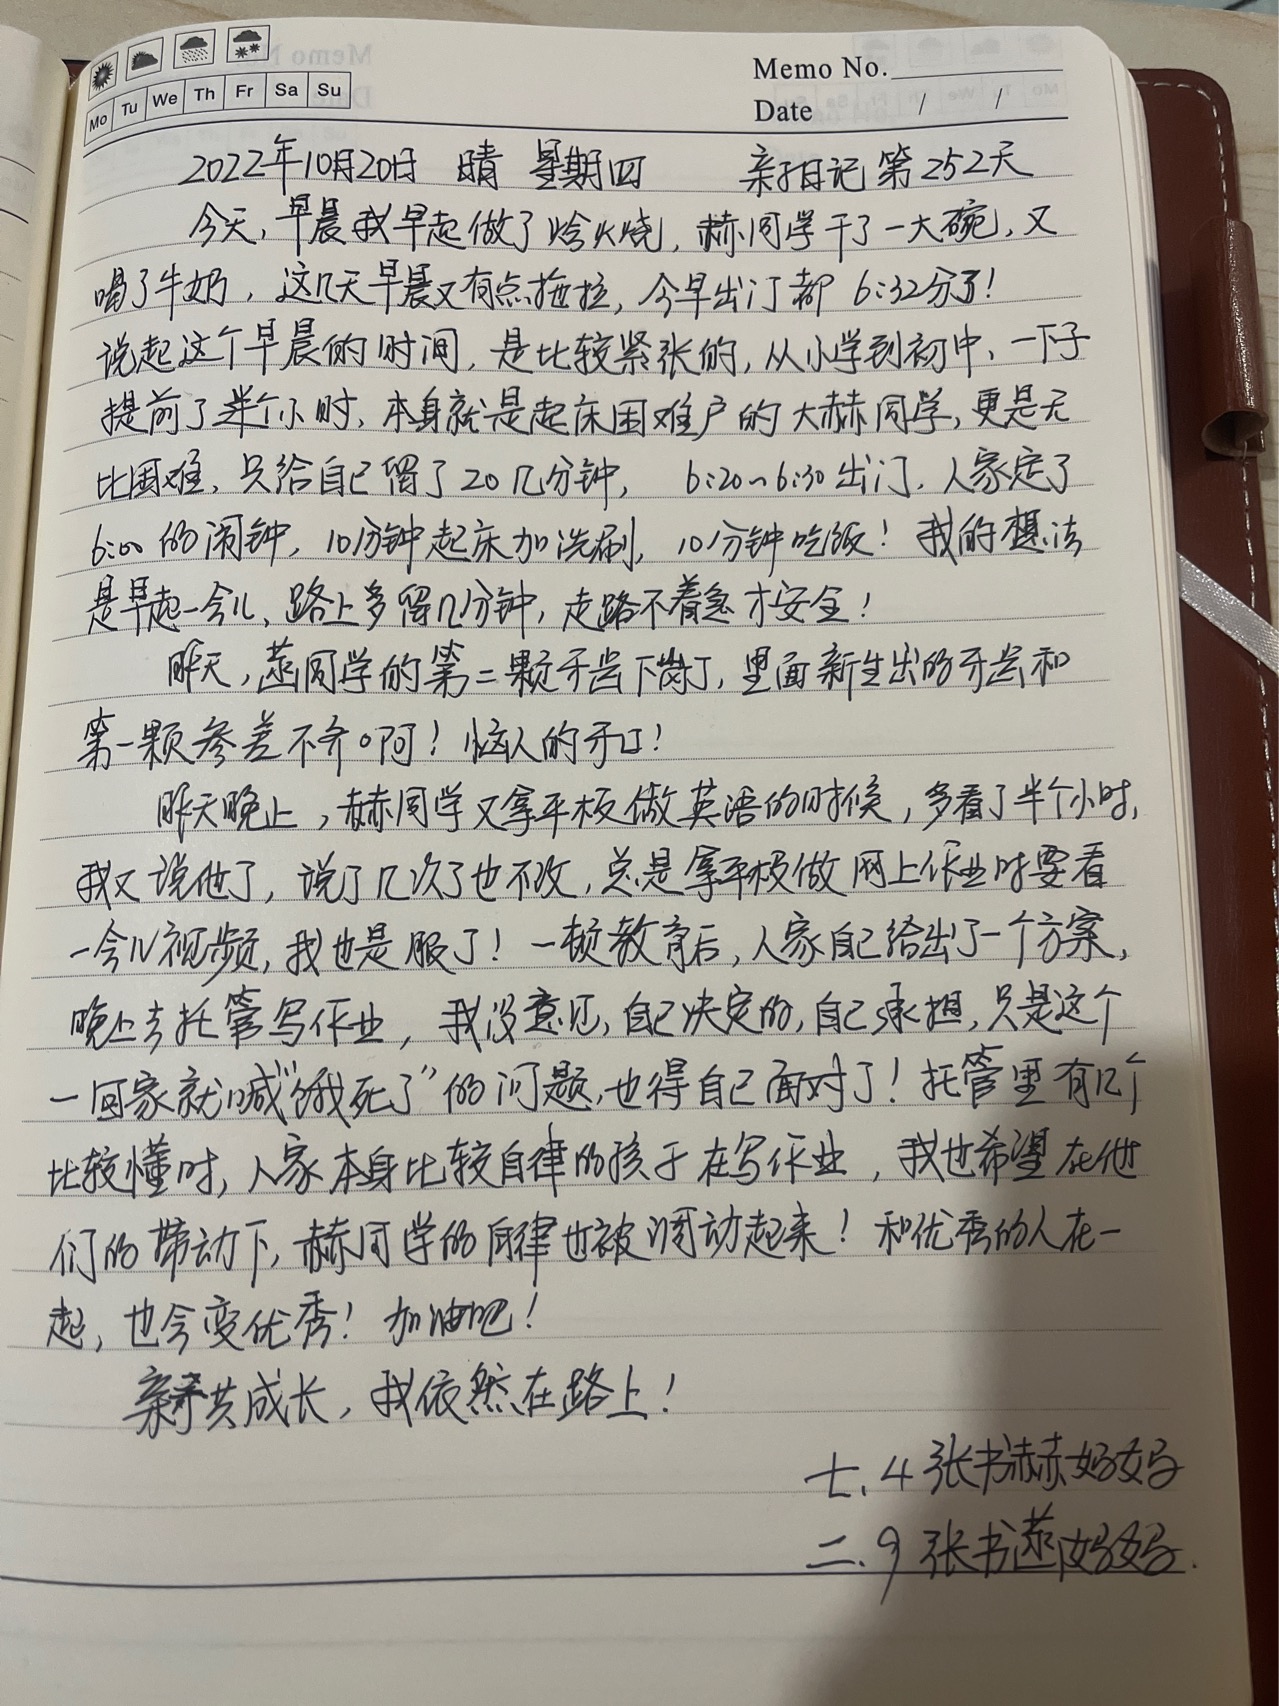 Memo No.
Mo Tu We Th Fr Sa Su
Date / /
2022年10月20日 晴 星期四 亲子日记第252天
今天,早晨我早起做了烩火烧,赫同学干了一大碗,又
喝了牛奶,这几天早晨又有点拖拉,今早出门都6:32分了!
说起这个早晨的时间,是比较紧张的,从小学到初中,一下子
提前了半个小时,本身就是起床困难户的大赫同学,更是无
比困难,只给自己留了20几分钟, 6:20~6:30出门.人家定了
6:00的闹钟,10分钟起床加洗刷,10分钟吃饭!我的想法
是早起一会儿,路上多留几分钟,走路不着急才安全!
昨天,菡同学的第二颗牙齿下岗了,里面新生出的牙齿和
第一颗参差不齐。啊!恼人的牙口!
昨天晚上,赫同学又拿平板做英语的时候,多看了半个小时,
我又说他了,说了几次了也不改,总是拿平板做网上作业时要看
一会儿视频,我也是服了!一顿教育后,人家自己给出了一个方案,
晚上去托管写作业,我没意见,自己决定的,自己承担,只是这个
一回家就喊“饿死了”的问题,也得自己面对了!托管里有几个
比较懂时,人家本身比较自律的孩子在写作业,我也希望在他
们的带动下,赫同学的自律也被调动起来!和优秀的人在一
起,也会变优秀!加油吧!
亲子共成长,我依然在路上!
七.4张书赫妈妈
二.9张书菡妈妈.